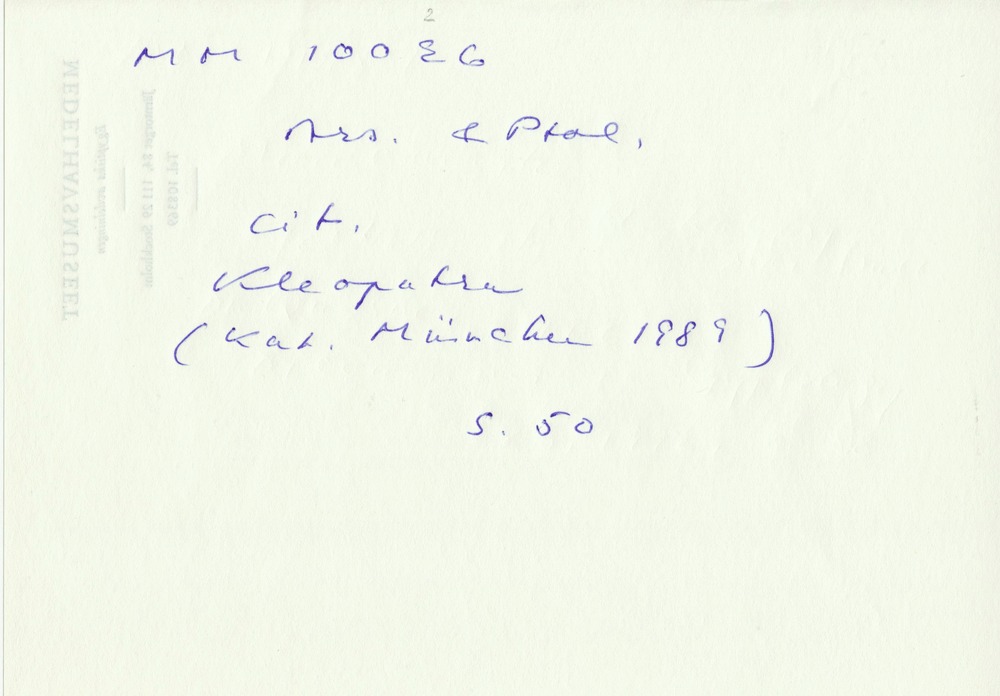 2
MM 10026
Ars. & Ptol.
Cit.
Kleopatra
(Kat. München 1989)
S. 50
MEDELHAVSMUSEET
Egyptiska avdelningen
Järntorget 84, 111 29 Stockholm
Tel. 108369